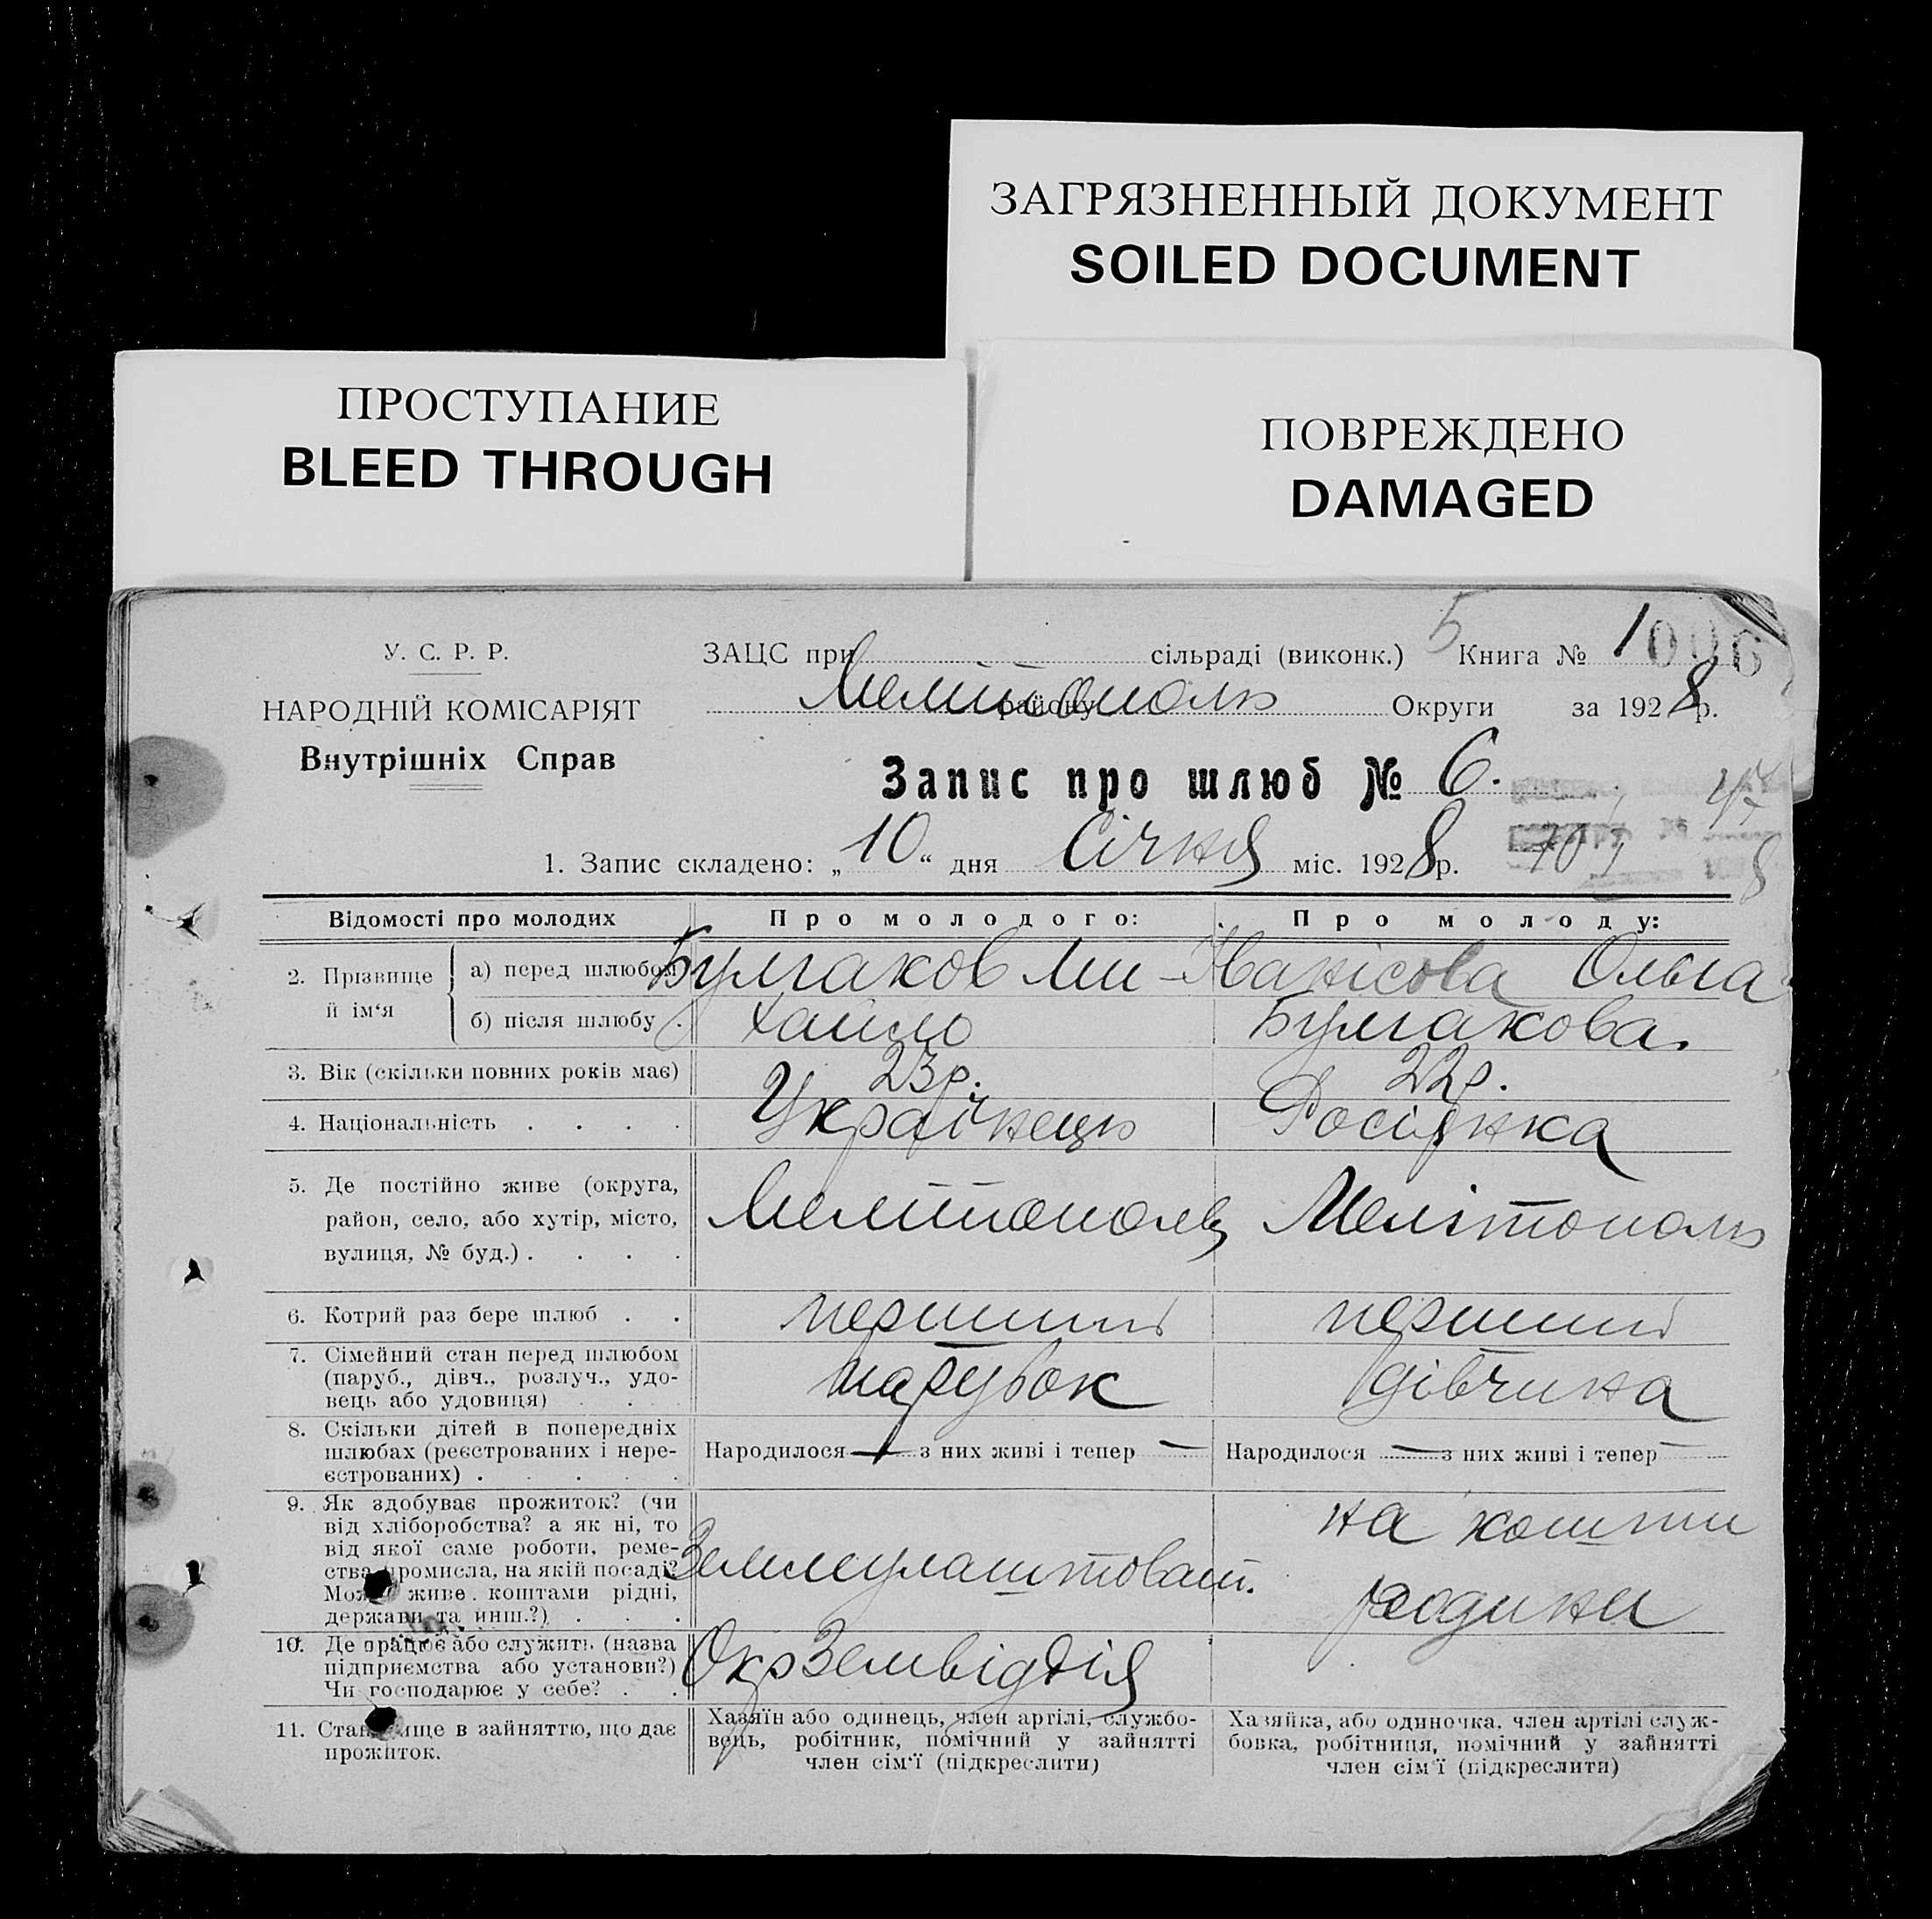 ЗАГРЯЗНЕННЫЙ ДОКУМЕНТ
SOILED DOCUMENT
ПРОСТУПАНИЕ
BLEED THROUGH
ПОВРЕЖДЕНО
DAMAGED
У. С. Р. Р.
НАРОДНІЙ КОМІСАРІЯТ
Внутрішніх Справ
ЗАЦС при сільраді (виконк.) 5 Книга № 1
006
Мелітополь району Округи за 1928 р.
Запис про шлюб № 6.
1. Запис складено: „ 10 “ дня Січня міс. 1928 р.
Відомості про молодих Про молодого: Про молоду:
2. Прізвище й ім'я
а) перед шлюбом Булгаков Ми- Ольга
б) після шлюбу хайло Булгакова.
3. Вік (скільки повних років має) 23 р. 22 р.
4. Національність Українець Росіянка
5. Де постійно живе (округа,
район, село, або хутір, місто,
вулиця, № буд.) Мелітополь Мелітополь
6. Котрий раз бере шлюб перший перший
7. Сімейний стан перед шлюбом
(паруб., дівч., розлуч., удо-
вець або удовиця) парубок дівчина
8. Скільки дітей в попередніх
шлюбах (реєстрованих і нере-
єстрованих) Народилося — з них живі і тепер — Народилося — з них живі і тепер —
9. Як здобуває прожиток? (чи
від хліборобства? а як ні, то
від якої саме роботи, реме-
ства, промисла, на якій посаді?
Може живе коштами рідні,
держави та инш.?)
Землеулаштоват.
на кошти
родини
10. Де працює або служить (назва
підприємства або установи?)
Чи господарює у себе?
ОкрЗемвідділ
11. Становище в зайняттю, що дає
прожиток.
Хазяїн або одинець, член артілі, службо-
вець, робітник, помічний у зайнятті
член сім'ї (підкреслити)
Хазяйка, або одиночка, член артілі служ-
бовка, робітниця, помічний у зайнятті
член сім'ї (підкреслити)